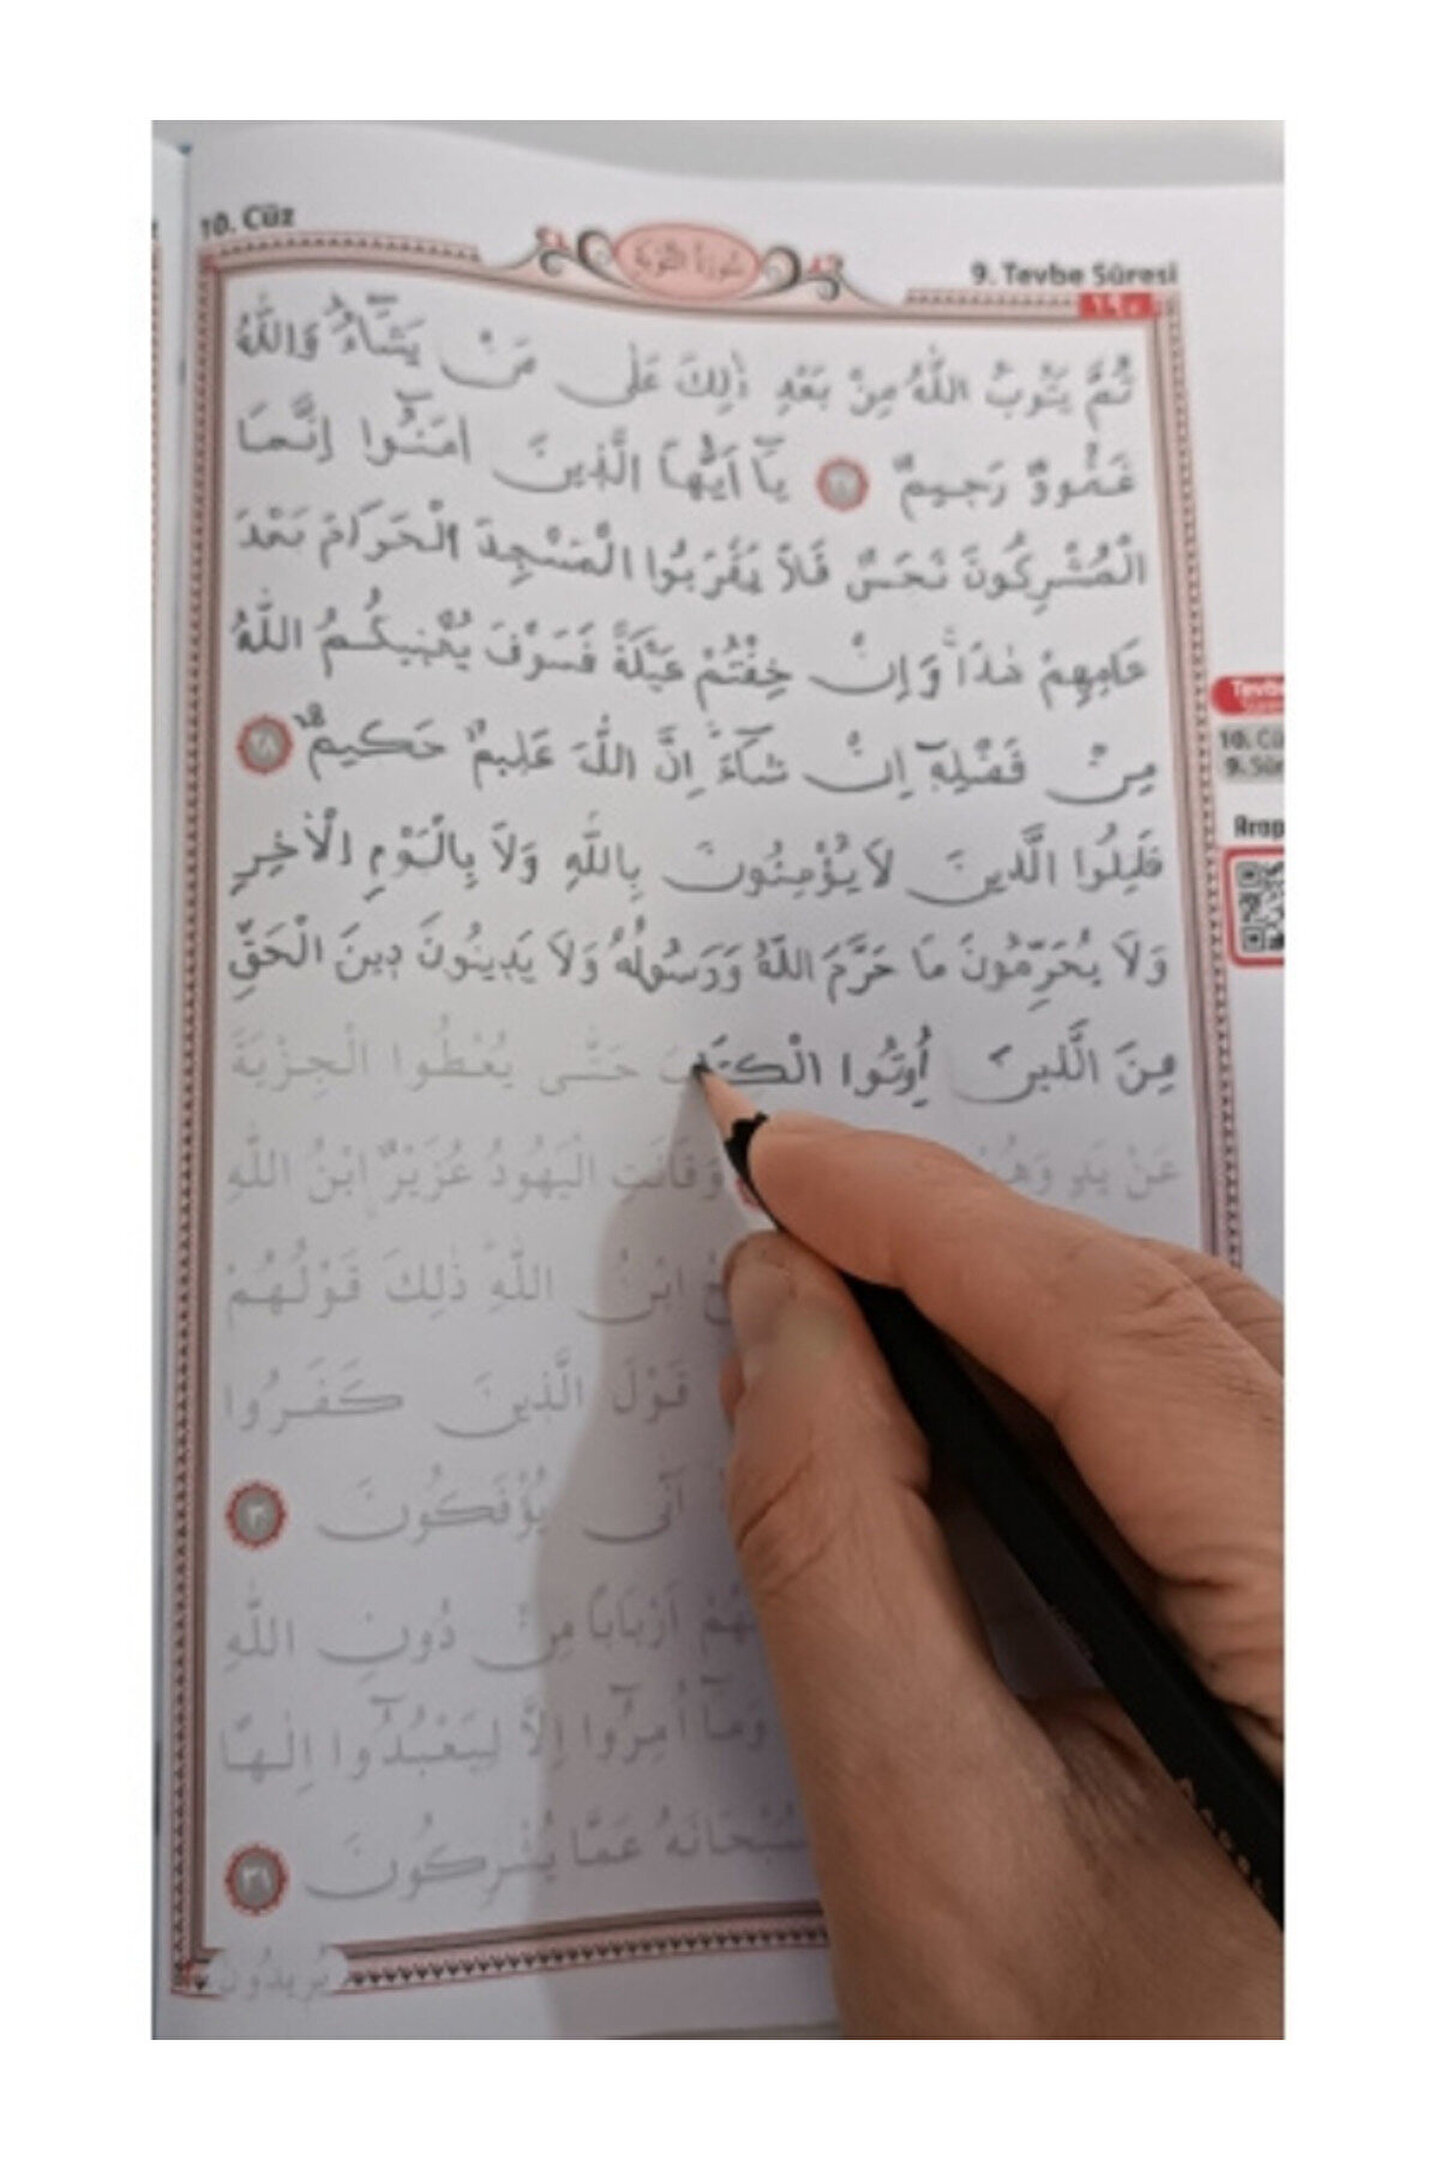 10. Cüz
سُورَةُ التَّوْبَةِ
9. Tevbe Sûresi
١٩٠
ثُمَّ يَتُوبُ اللّٰهُ مِنْ بَعْدِ ذٰلِكَ عَلٰى مَنْ يَشَٓاءُ وَاللّٰهُ
غَفُورٌ رَحِيمٌ يَٓا اَيُّهَا الَّذِينَ اٰمَنُٓوا اِنَّمَا
الْمُشْرِكُونَ نَجَسٌ فَلَا يَقْرَبُوا الْمَسْجِدَ الْحَرَامَ بَعْدَ
عَامِهِمْ هٰذَا وَاِنْ خِفْتُمْ عَيْلَةً فَسَوْفَ يُغْنِيكُمُ اللّٰهُ
مِنْ فَضْلِهٓ اِنْ شَٓاءَ اِنَّ اللّٰهَ عَلِيمٌ حَكِيمٌ ٢٨
قَاتِلُوا الَّذِينَ لَا يُؤْمِنُونَ بِاللّٰهِ وَلَا بِالْيَوْمِ الْاٰخِرِ
وَلَا يُحَرِّمُونَ مَا حَرَّمَ اللّٰهُ وَرَسُولُهُ وَلَا يَدِينُونَ دِينَ الْحَقِّ
مِنَ الَّذِينَ أُوتُوا الْكِتَابَ حَتّٰى يُعْطُوا الْجِزْيَةَ
عَنْ يَدٍ وَهُمْ وَقَالَتِ الْيَهُودُ عُزَيْرٌ ابْنُ اللّٰهِ
ابْنُ اللّٰهِ ذٰلِكَ قَوْلُهُمْ
قَوْلَ الَّذِينَ كَفَرُوا
اَنّٰى يُؤْفَكُونَ ٣٠
اَرْبَابًا مِنْ دُونِ اللّٰهِ
وَمَٓا اُمِرُٓوا اِلَّا لِيَعْبُدُٓوا اِلٰهًا
سُبْحَانَهُ عَمَّا يُشْرِكُونَ ٣١
يُرِيدُونَ
10. Cü
9. Sûr